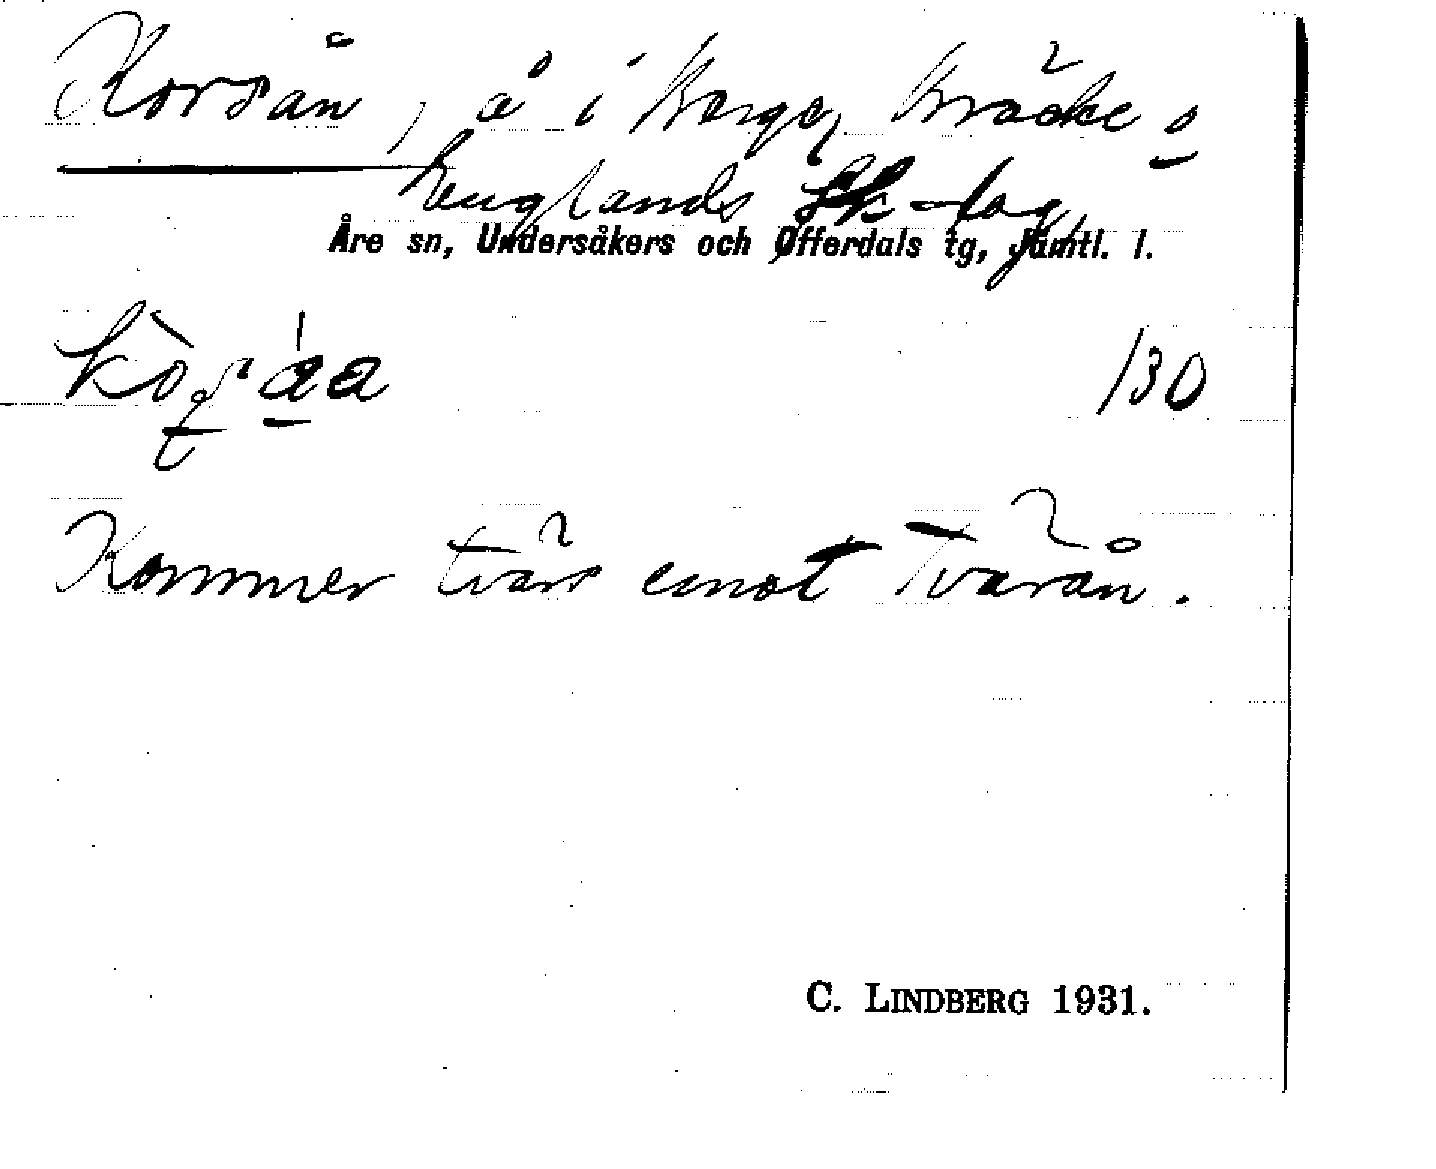 Korsån, å i Norge, Bräcke o
Englands sk-lag
Åre sn, Undersåkers och Offerdals tg, Jämtl. l.
130
Kommer tvärs emot Tvärån.
C. LINDBERG 1931.